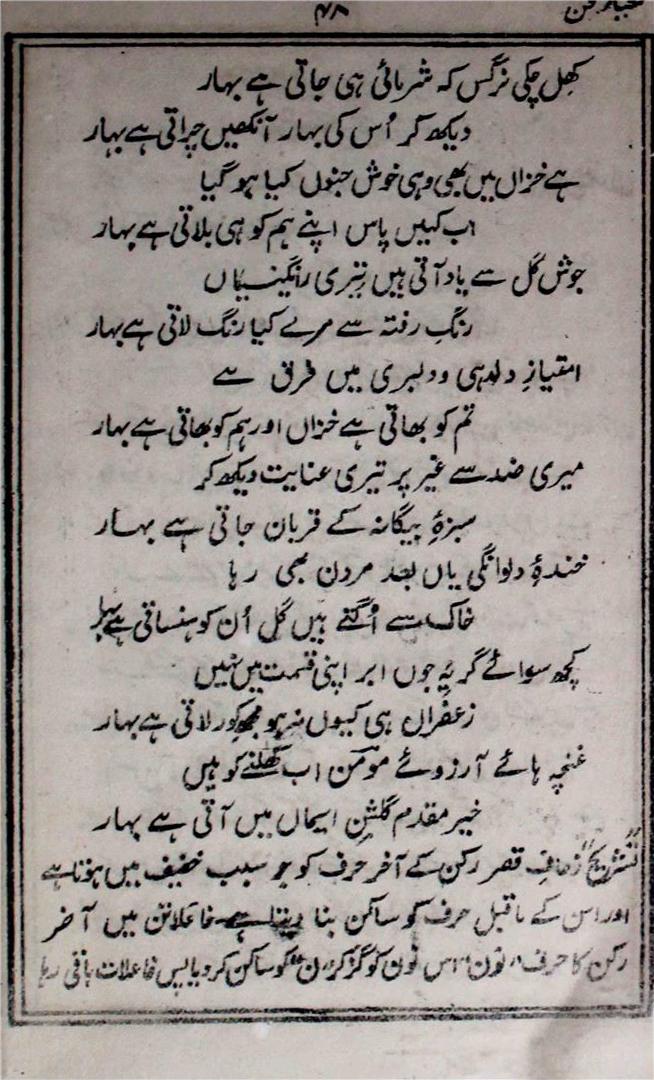 ۴۸
کھل چکی نرگس کہ شرمائی ہی جاتی ہے بہار
دیکھ کر اُس کی بہار آنکھیں چراتی ہے بہار
ہے خزاں میں بھی وہی خوش جنوں کیا ہو گیا
اب کہیں پاس اپنے ہم کو ہی بلاتی ہے بہار
جوش گل سے یاد آتی ہیں تیری رنگینیاں
رنگ رفتہ سے مرے کیا رنگ لاتی ہے بہار
امتیازِ دلدہی و دلبری میں فرق ہے
تم کو بھاتی ہے خزاں اور ہم کو بھاتی ہے بہار
میری ضد سے غیر پر تیری عنایت دیکھ کر
سبزۂ بیگانہ کے قربان جاتی ہے بہار
خندۂ دلوانگی یاں بعد مردن بھی رہا
خاک سے اُگتے ہیں گل اُن کو ہنساتی ہے بہار
کچھ سوائے گریہ جوں ابر اپنی قسمت میں نہیں
زعفران ہی کیوں نہ ہو مجھ کو رلاتی ہے بہار
غنچہ ہائے آرزوئے مومن اب کھلنے کو ہیں
خیر مقدم گلشنِ ایماں میں آتی ہے بہار
تشریح زحافِ قصر رکن کے آخر حرف کو جو سبب خفیف میں ہوتا ہے
اور اس کے ماقبل حرف کو ساکن بنا دیتا ہے۔ فاعلاتن میں آخر
رکن کا حرف "نون" اس نون کو گرا کر "ت" کو ساکن کر دیا پس فاعلات باقی رہا